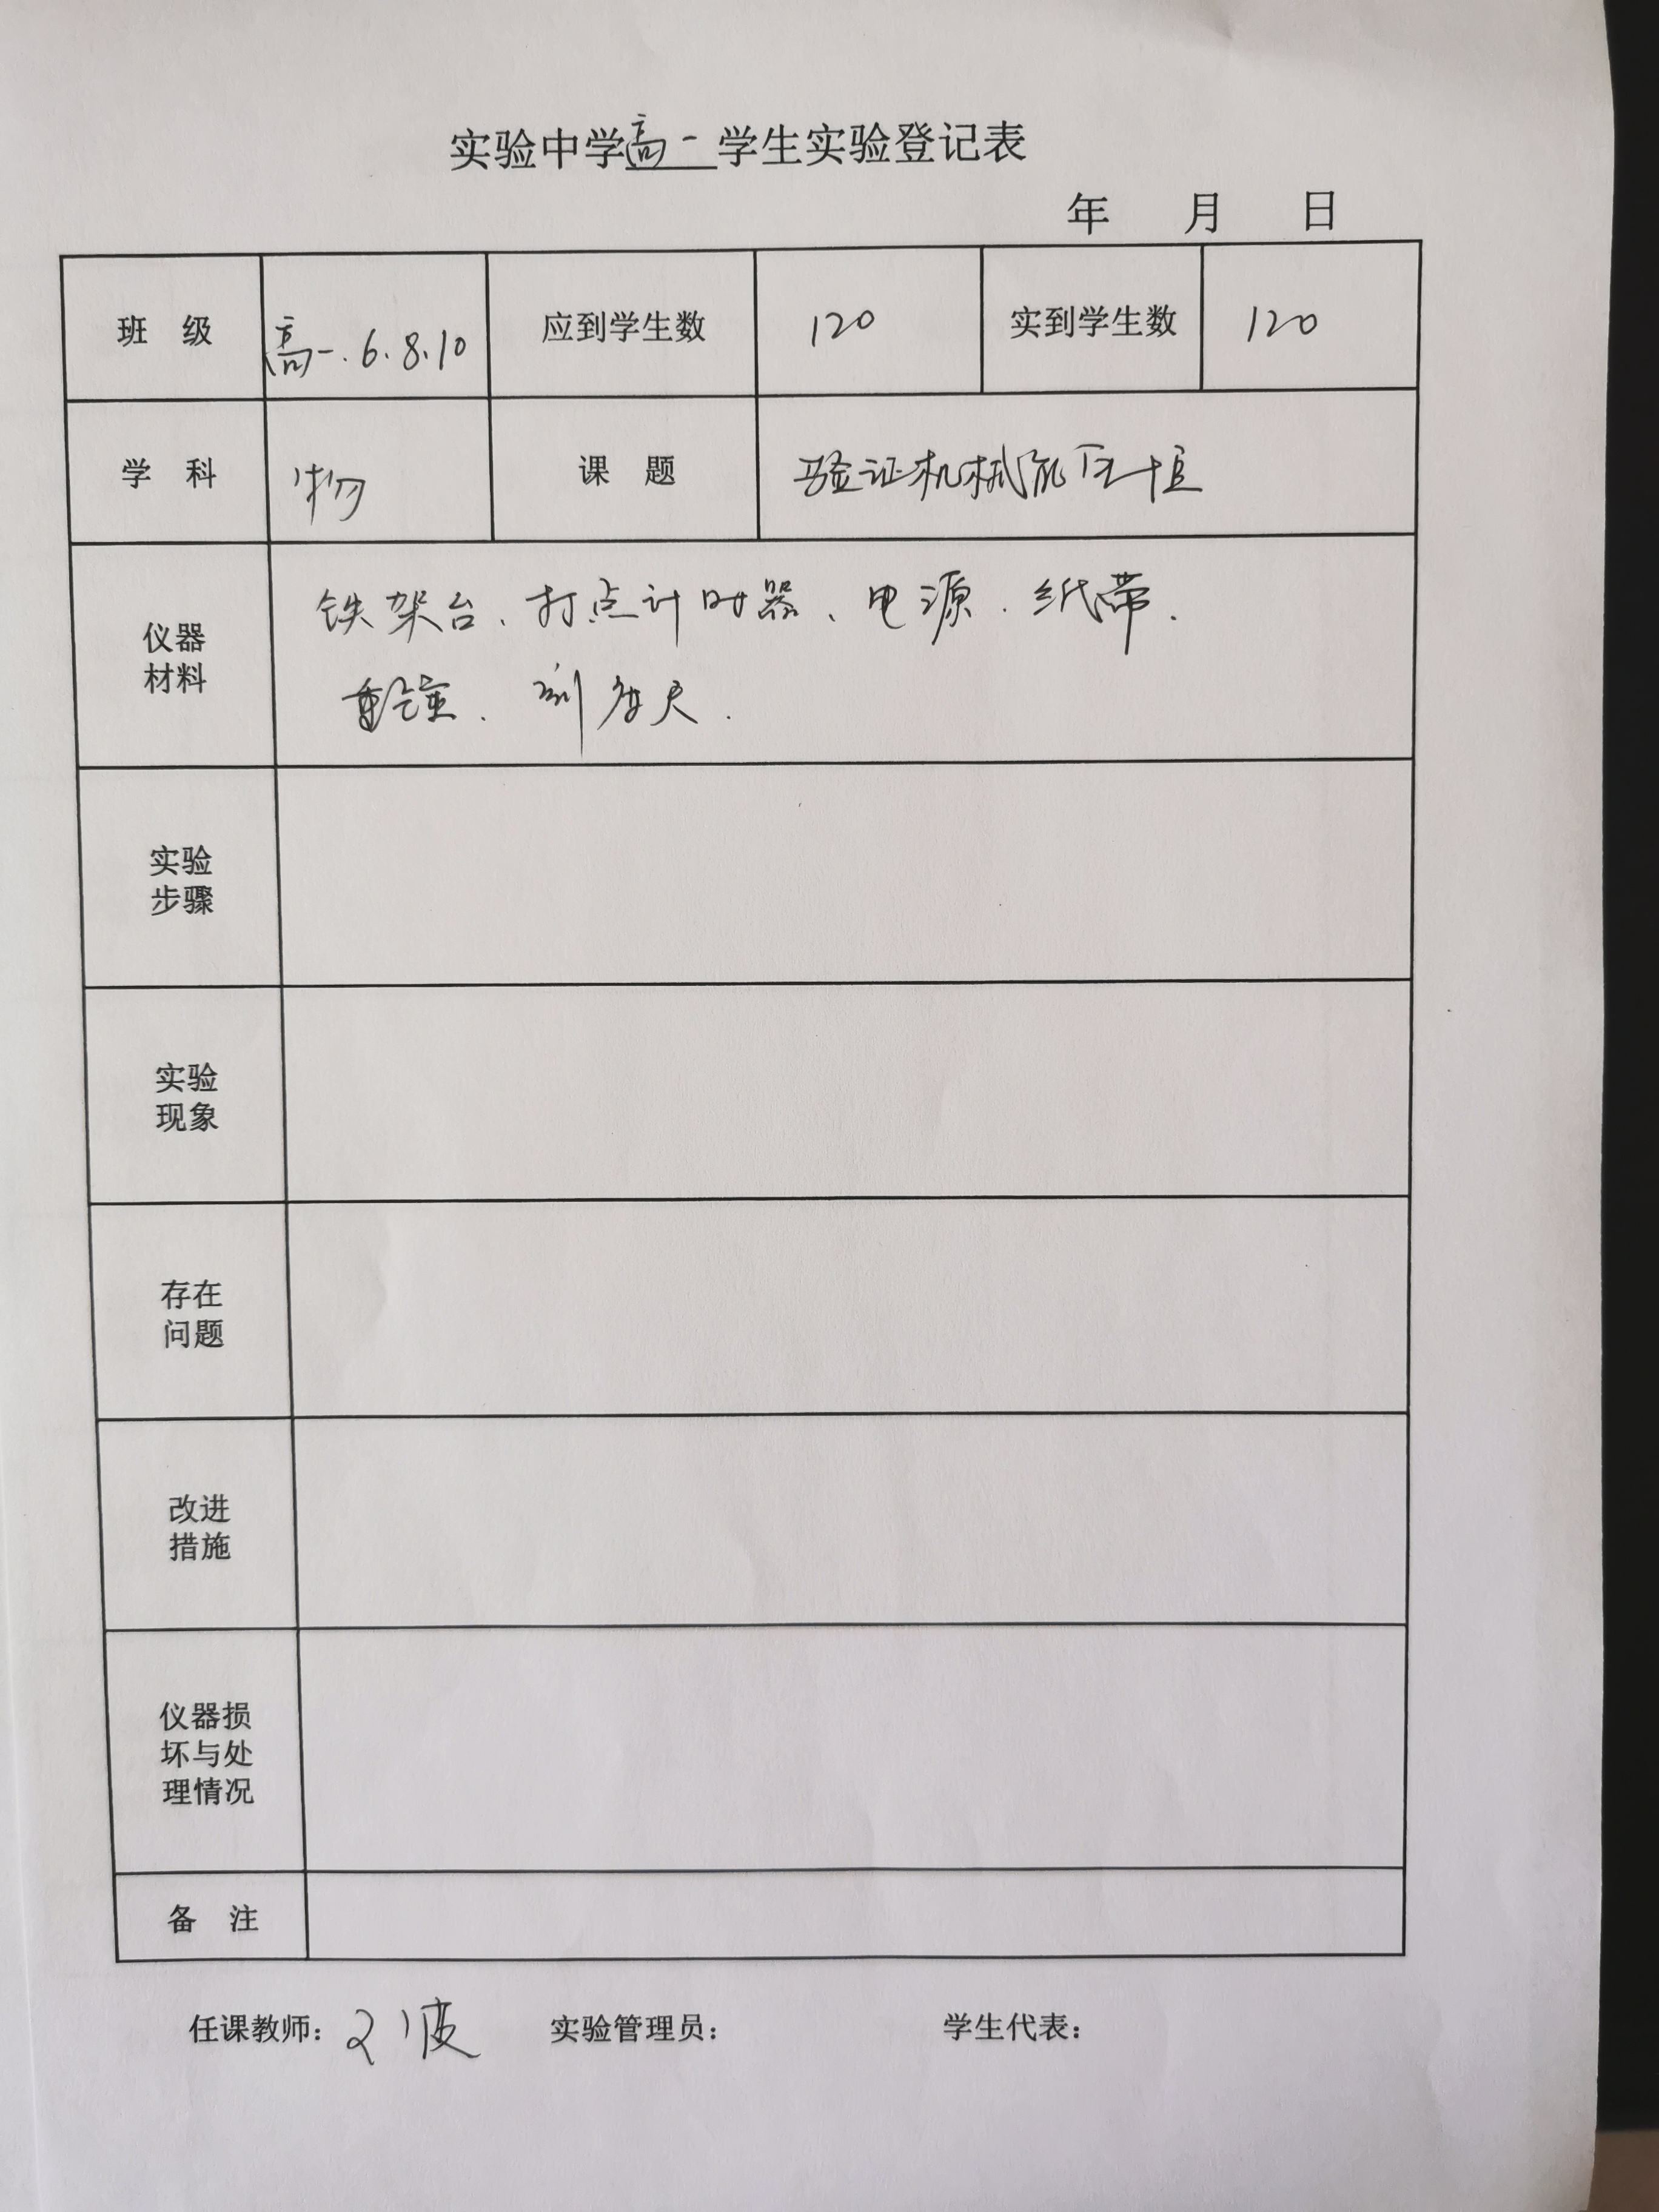 实验中学高一学生实验登记表
年 月 日
班 级 高一.6.8.10 应到学生数 120 实到学生数 120
学 科 物 课 题 验证机械能守恒
仪器
材料
铁架台、打点计时器、电源.纸带.
重锤.刻度尺.
实验
步骤
实验
现象
存在
问题
改进
措施
仪器损
坏与处
理情况
备 注
任课教师: 波 实验管理员: 学生代表: